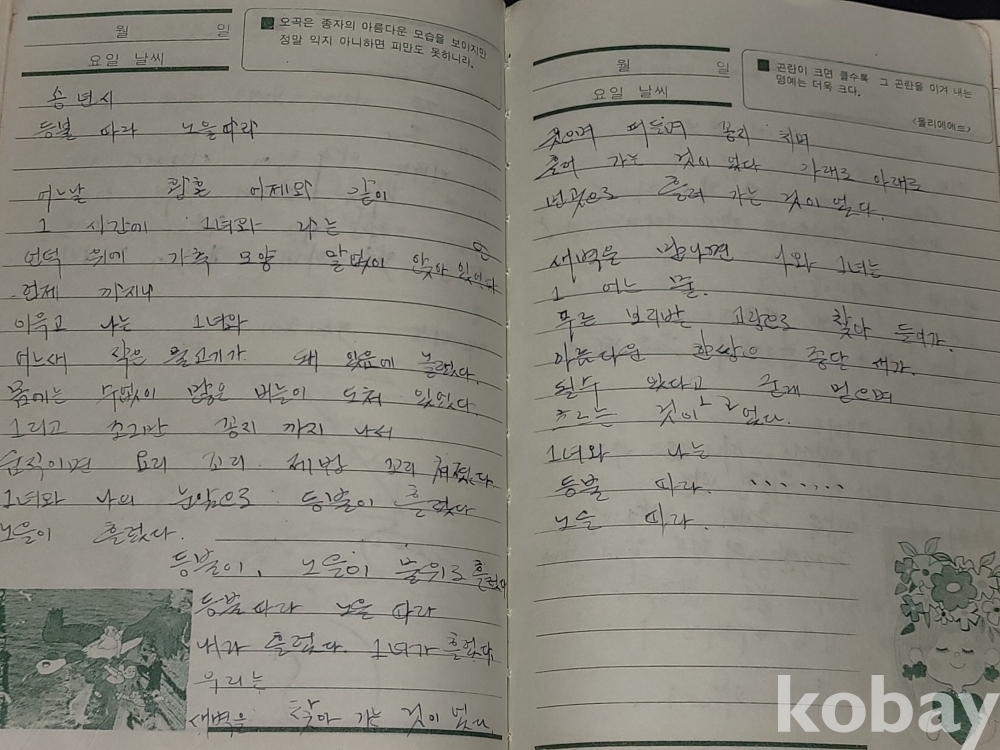 월 일
요일 날씨
오곡은 종자의 아름다운 모습을 보이지만
정말 익지 아니하면 피만도 못하니라.
송년시
등불 따라 노을따라
어느날 황혼 어제와 같이
그 시간에 그녀와 나는
언덕 위에 가축 모양 말없이 앉아 있었다
언제 까지나
이윽고 나는 그녀와
어느새 작은 물고기가 돼 있음에 놀랐다.
몸에는 수없이 많은 비늘이 도쳐 있었다.
그리고 조그만 꽁지 까지 나서
움직이면 요리 꼬리 제법 꼬리 쳐졌다.
그녀와 나의 눈앞으로 등불이 흘렀다
노을이 흘렀다.
등불이, 노을이 물위로 흘렀다
등불따라 노을 따라
내가 흘렀다. 그녀가 흘렀다.
우리는
새벽을 찾아 가는 것이 었다.
월 일
요일 날씨
곤란이 크면 클수록 그 곤란을 이겨 내는
명예는 더욱 크다.
<몰리에에르>
웃으며 떠들며 꽁지 치며
흘러 가는 것이 었다 아래로 아래로
흘러 가는 것이 었다.
새벽을 만나면 나와 그녀는
그 어느 물.
푸른 보리밭 고랑으로 찾아 들어가.
아름다운 한쌍의 종달새가.
될수 있다고 굳게 믿으며
흐르는 것이 었다.
그녀와 나는
등불 따라. .......
노을 따라.
kobay